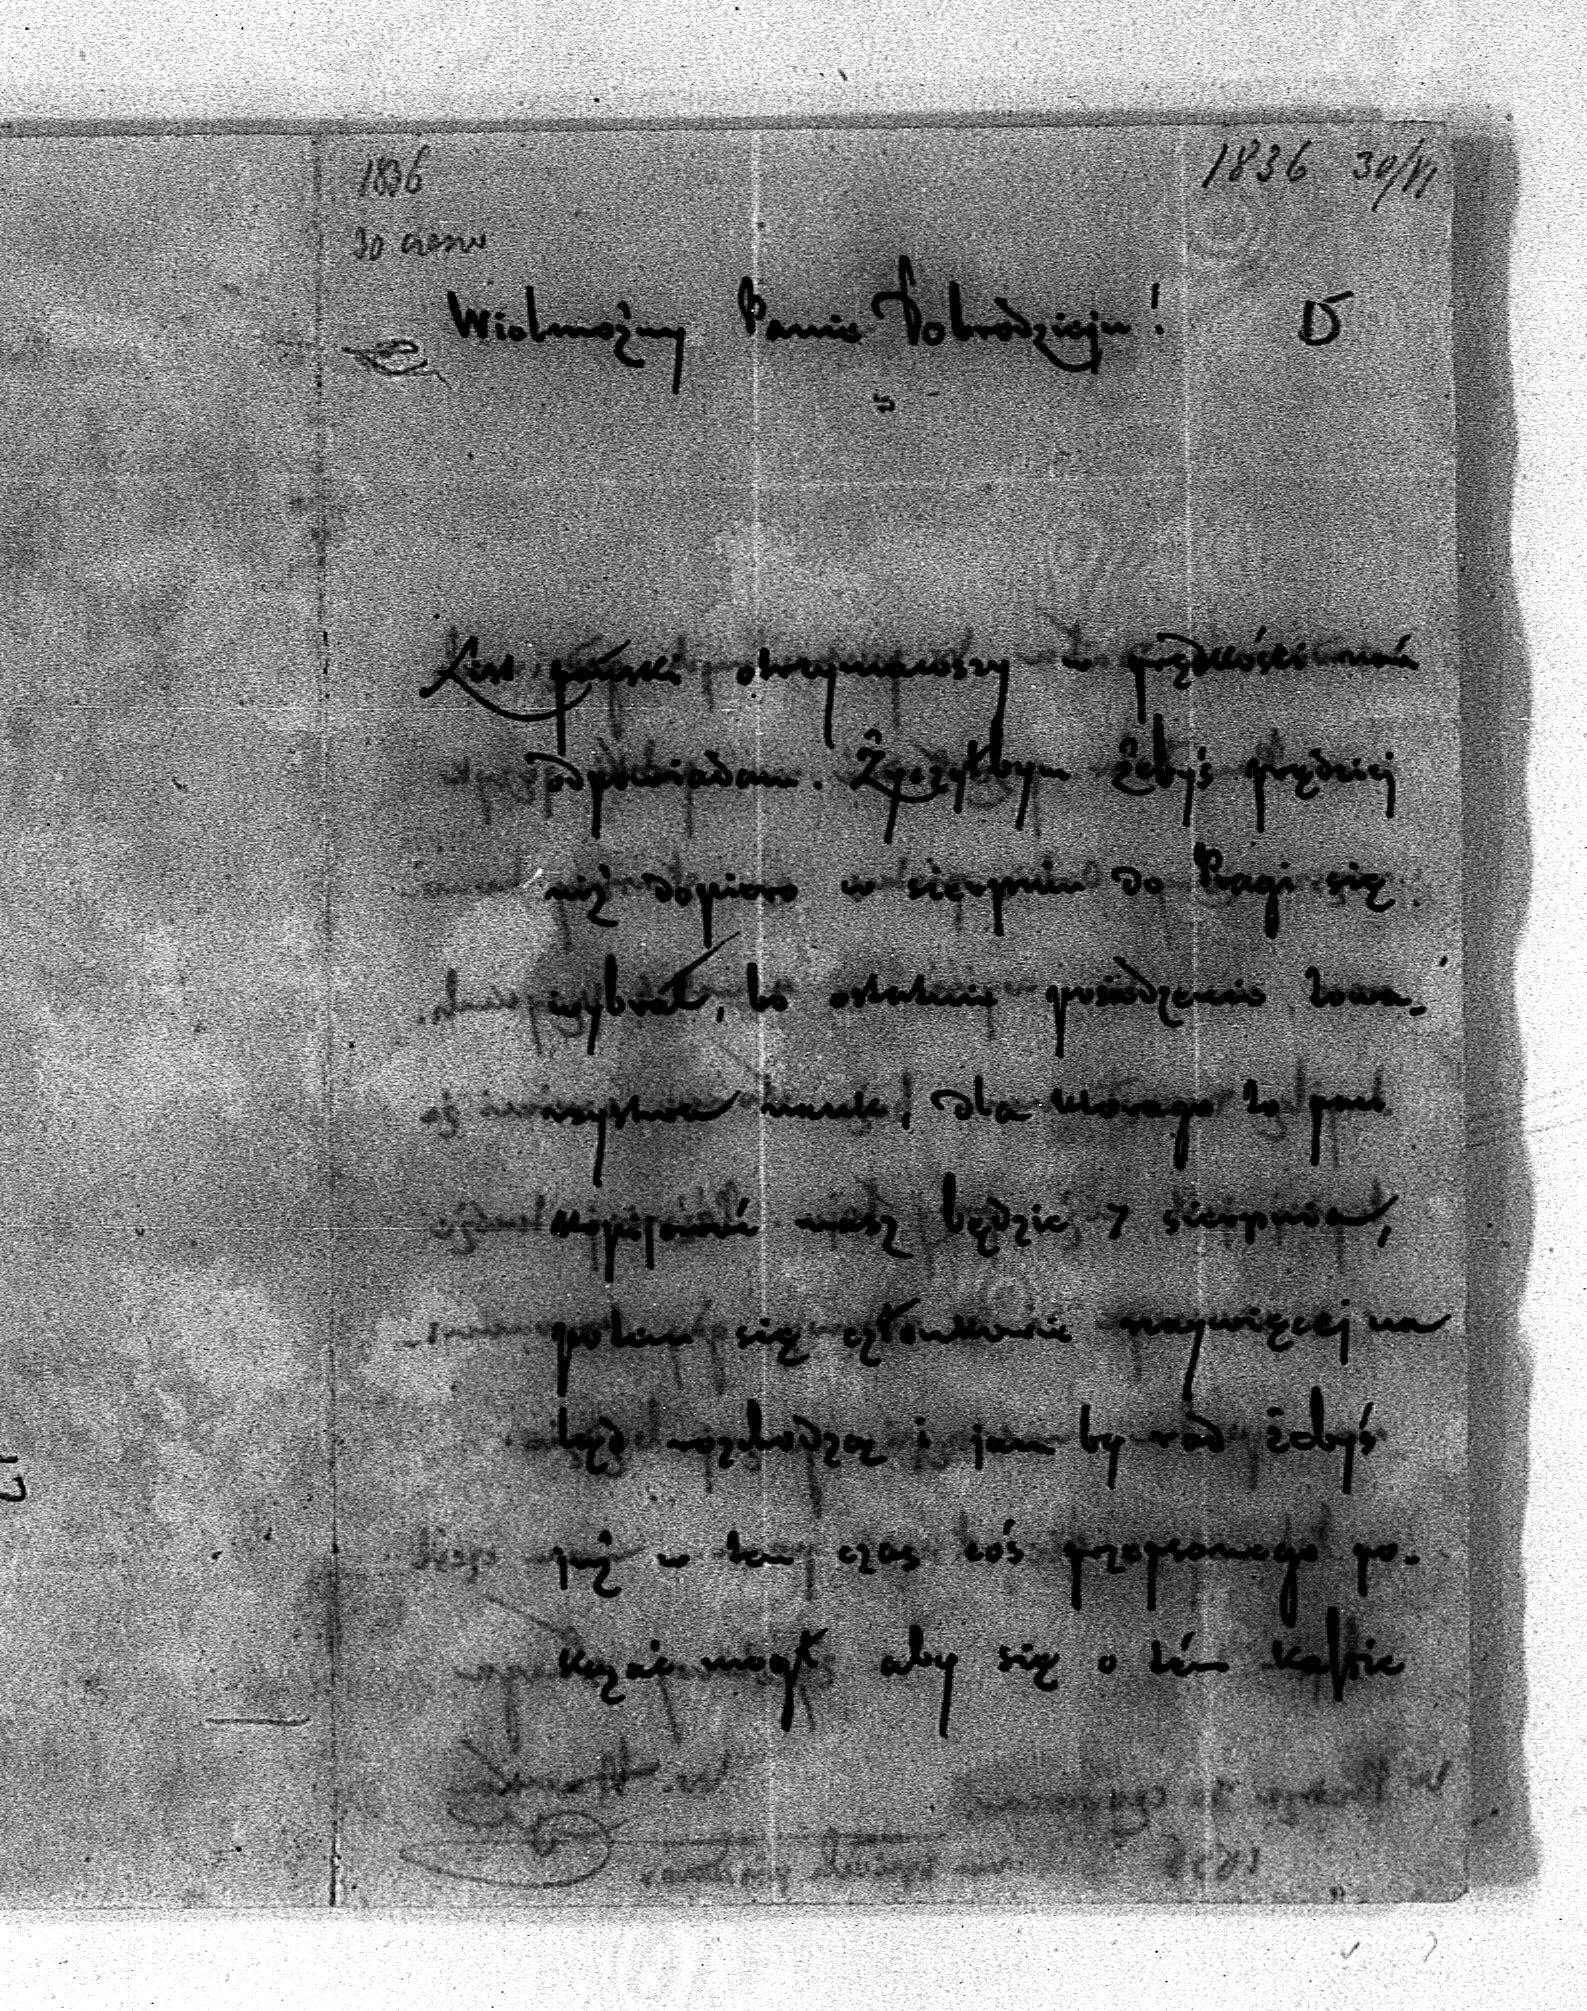 1836
1836 30/VI
30 czerw
Wielmożny Panie Dobrodzieju!
List pański otrzymawszy w prędkości nań
odpowiadam. Życzyłbym żebyś prędzej
niż dopiero w sierpniu do Pragi się
wybrał, bo ostatnie posiedzenie towa-
rzystwa nauk, dla którego to pan
masz będzie 7 sierpnia,
potem się członkowie naywięcej na
rozchodzą i jam by rad żebyś
już w ten czas coś przepisanego po-
kazać mógł aby się o tém